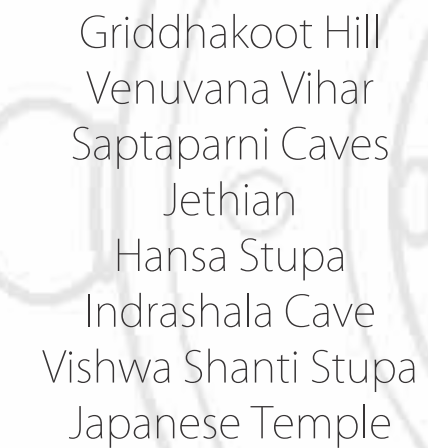 Griddhakoot Hill
Venuvana Vihar
Saptaparni Caves
Jethian
Hansa Stupa
Indrashala Cave
Vishwa Shanti Stupa
Japanese Temple